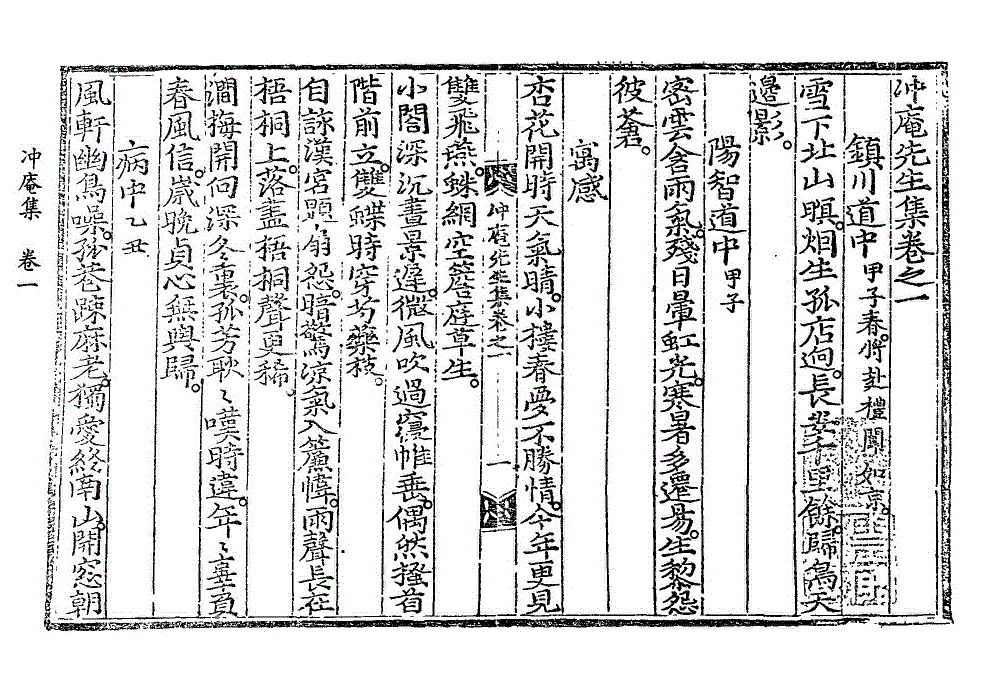 冲庵先生集卷之一
鎮川道中 甲子春。將赴禮闈如京。
雪下北山暝。烟生孤店逈。長安千里餘。歸鳥天
邊影。
陽智道中 甲子
密雲含雨氣。殘日暈虹光。寒暑多還易。生物怨
彼蒼。
寓感
杏花開時天氣晴。小樓春夢不勝情。今年更見
冲庵先生集卷之一 一
雙飛燕。蛛網空簷庭草生。
小閤深沉晝景遲。微風吹過寢帷垂。偶然搔首
階前立。雙蝶時穿芍藥枝。
自詠漢宮題扇怨。暗驚凉氣入簾幃。雨聲長在
梧桐上。落盡梧桐聲更稀。
澗梅開向深冬裏。孤芳耿〻嘆時違。年〻辜負
春風信。歲晩貞心無與歸。
病中 乙丑
風軒幽鳥噪。孤巷踈麻老。獨愛終南山。開窓朝
冲庵集 卷一